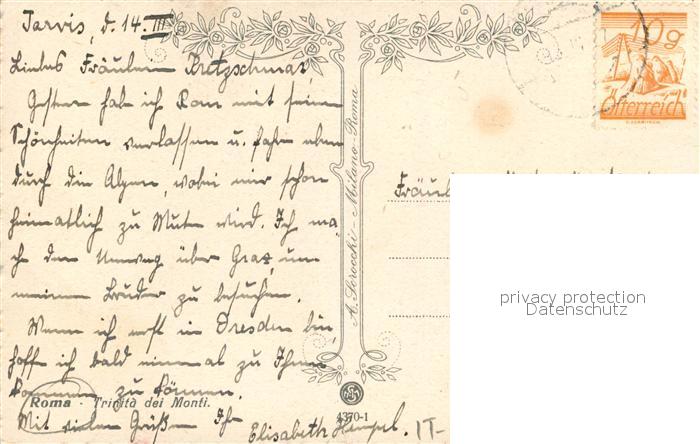 Tarvis, d. 14. III
Liebes Fräulein Bretzschmar,
Gestern hab ich Rom mit seinen
Schönheiten verlassen u. fahre eben
durch die Alpen, wobei mir schon
heimatlich zu Mute wird. Ich ma-
che den Umweg über Graz, um
meinen Bruder zu besuchen.
Wenn ich erst in Dresden bin,
hoff ich bald einmal zu Ihnen
kommen zu können.
Mit vielen Grüßen Ihre
Elisabeth Hempel.
Roma - Trinità dei Monti.
A. Scrocchi - Milano-Roma
4370-1
10g
Österreich
privacy protection
Datenschutz